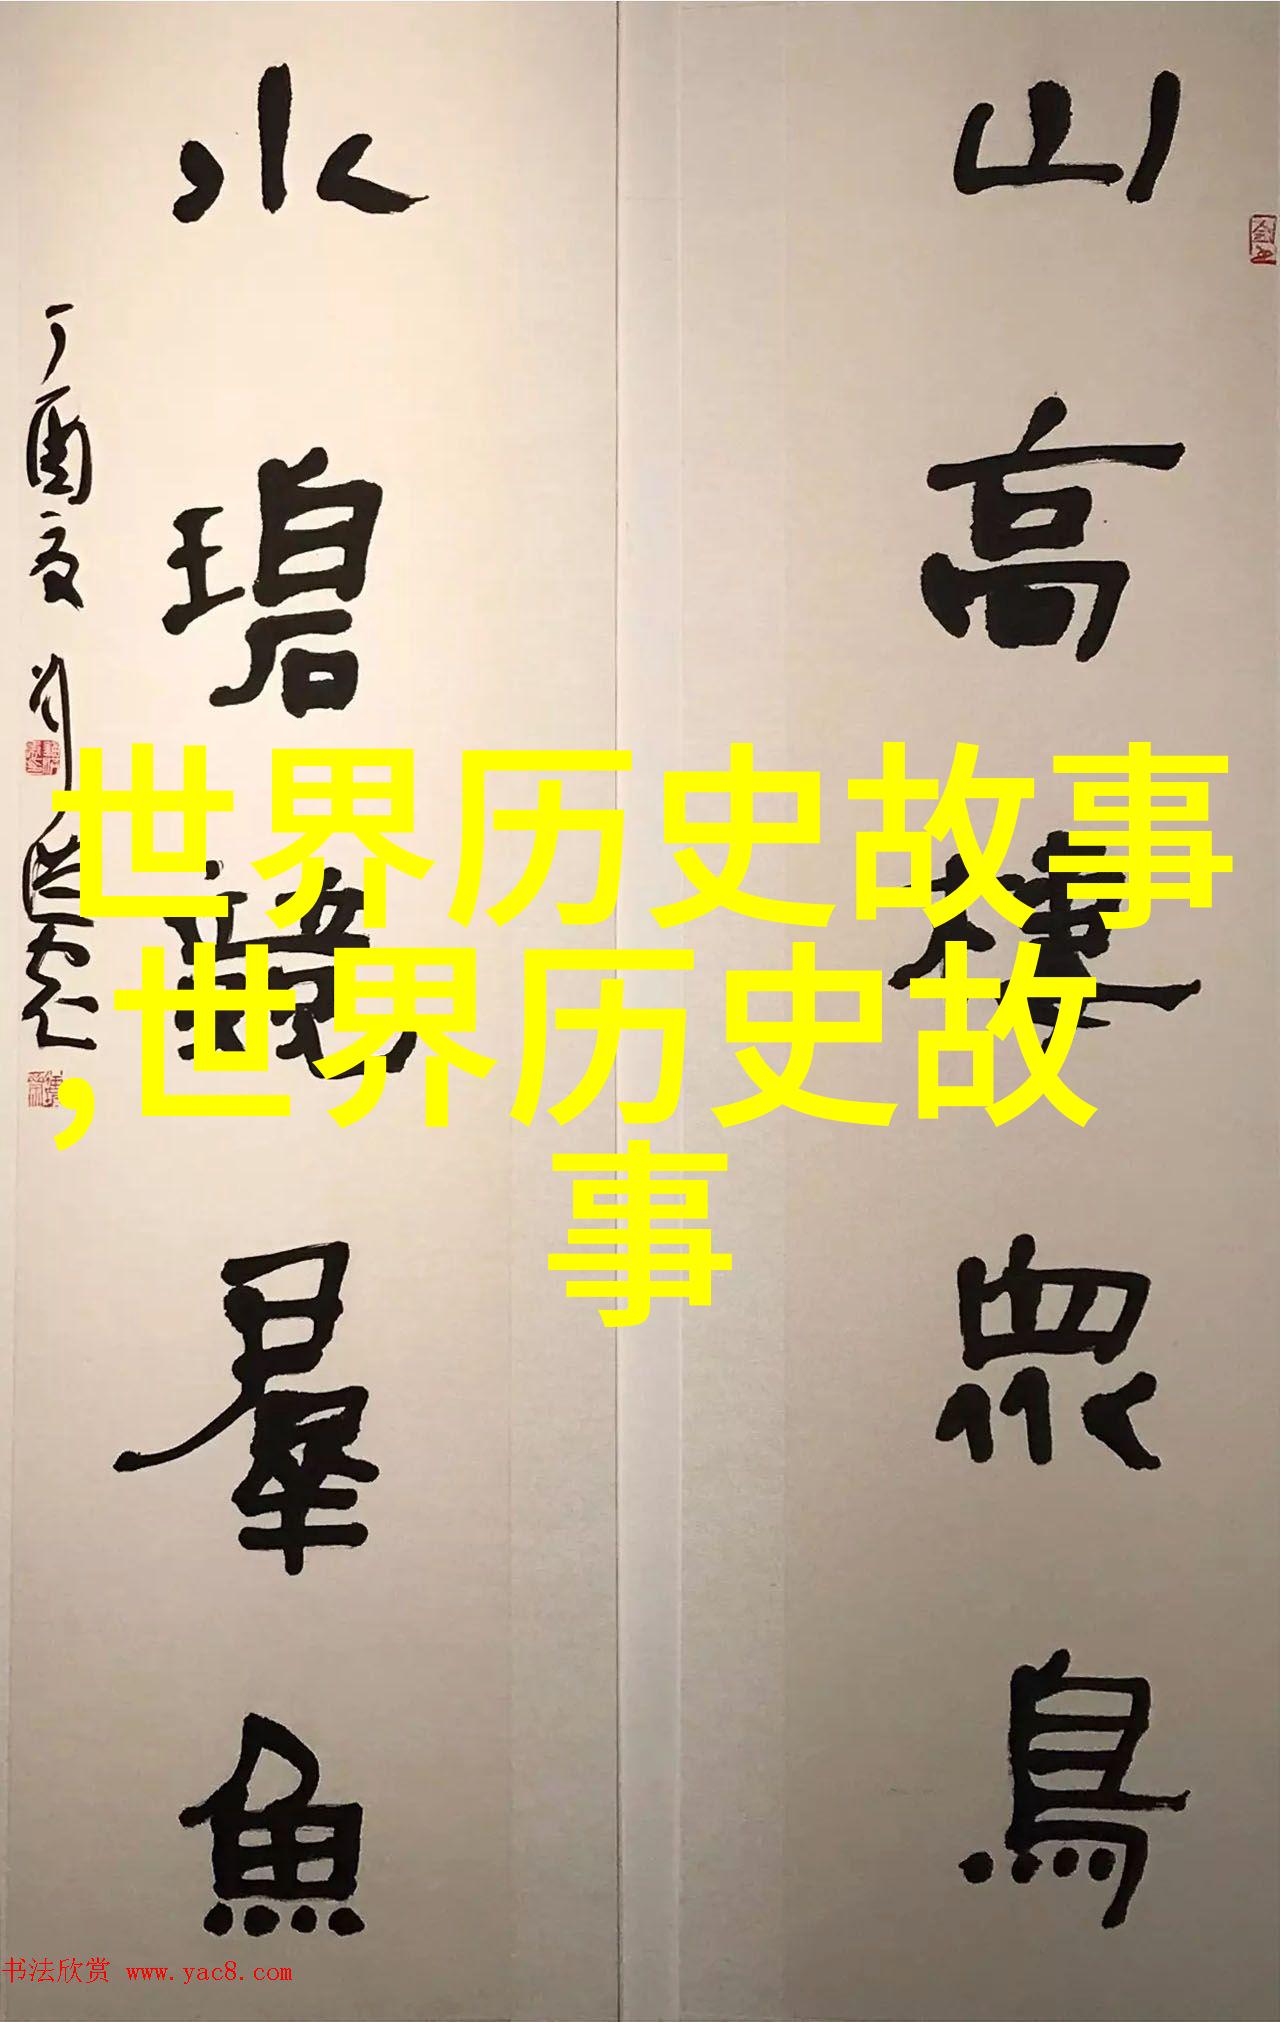 山高棲眾鳥
水碧羣魚
丁酉夏
世界历史故事
,世界历史故
事
书法欣赏 www.yac8.com